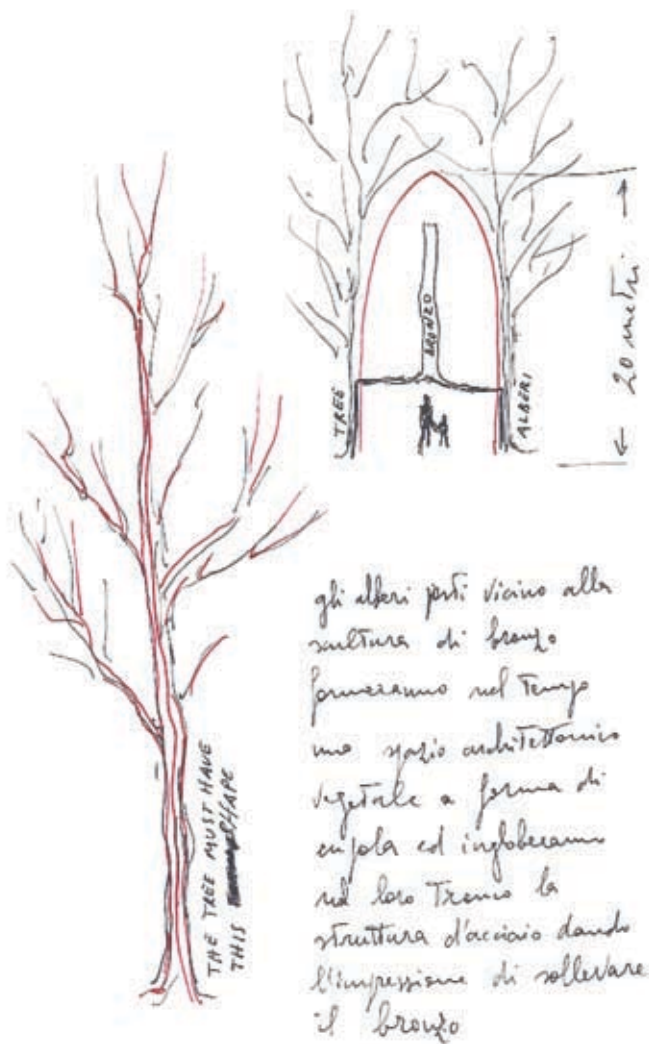 BRONZO
TREE
ALBERI
20 metri
THE TREE MUST HAVE
THIS SHAPE
gli alberi posti vicino alla
scultura di bronzo
formeranno nel Tempo
uno spazio architettonico
vegetale a forma di
cupola ed ingloberanno
nel loro Tronco la
struttura d'acciaio dando
l'impressione di sollevare
il bronzo